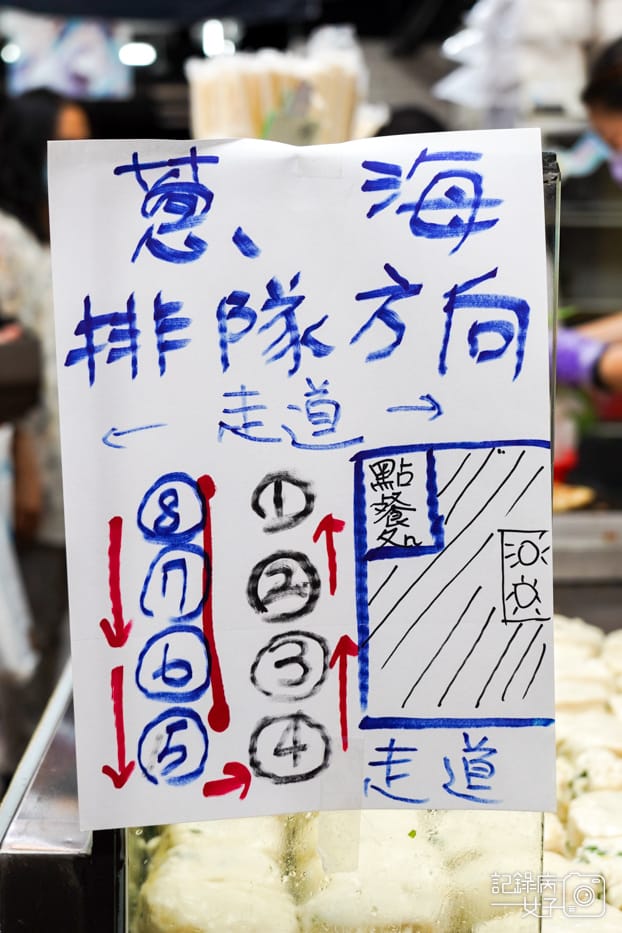 蔥、海
排隊方向
← 走道 →
點餐
⑧ ①
⑦ ②
⑥ ③
⑤ ④
走道
記錄病
女子